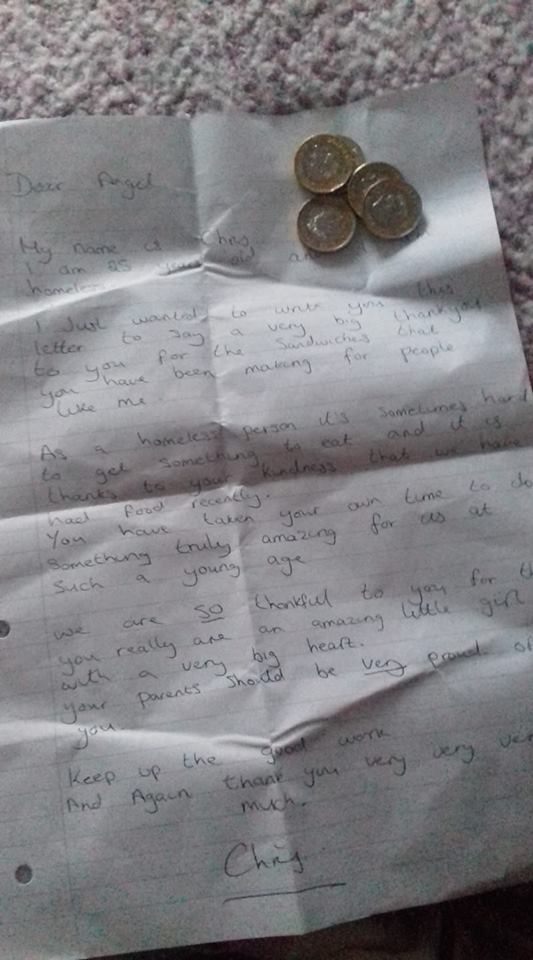 Dear Angel
My name is Chris,
I am 25 years old an
homeless
I Just wanted to write you this
letter to say a very big thankyou
to you for the sandwiches that
you have been making for people
like me.
As a homeless person it's sometimes hard
to get something to eat and it is
thanks to your kindness that we have
had food recently.
You have taken your own time to do
something truly amazing for us at
such a young age
we are so thankful to you for th
you really are an amazing little girl
with a very big heart.
your parents should be very proud of
you.
Keep up the good work
And Again thank you very very ver
much.
Chris